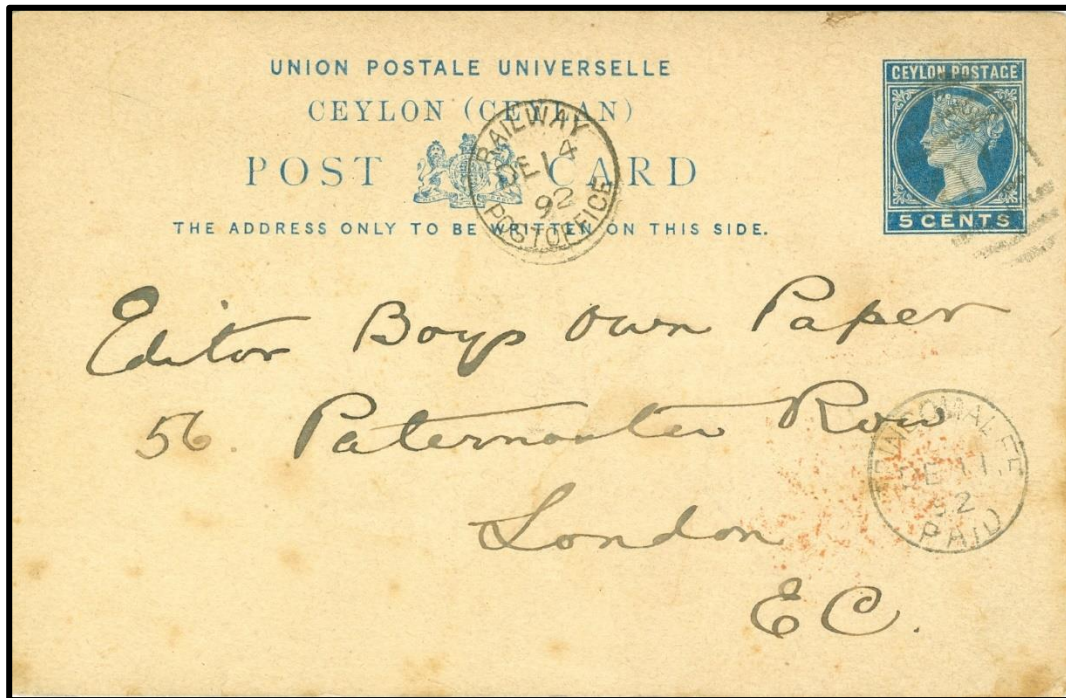 UNION POSTALE UNIVERSELLE
CEYLON (CEYLAN)
POST CARD
THE ADDRESS ONLY TO BE WRITTEN ON THIS SIDE.
CEYLON POSTAGE
5 CENTS
RAILWAY
DE 14
92
POST OFFICE
Editor Boys Own Paper
56. Paternoster Row
London
EC.
TRINCOMALEE
DE 11
92
PAID